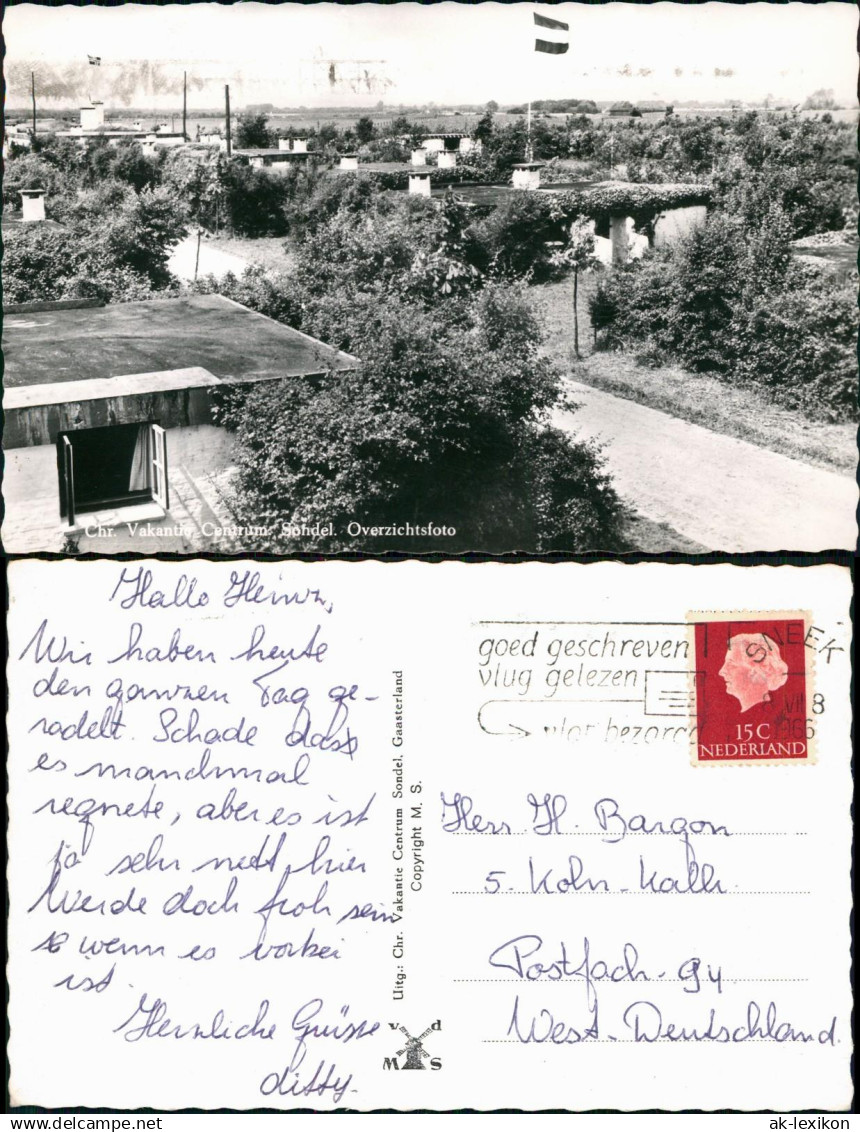 Chr. Vakantie Centrum. Sondel. Overzichtsfoto
Hallo Heinz,
Wir haben heute
den ganzen Tag ge-
radelt. Schade dass
es manchmal
regnete, aber es ist
ja sehr nett hier
Werde doch froh sein
wenn es vorbei
ist.
Herzliche Grüsse
ditty.
Uitg.: Chr. Vakantie Centrum Sondel, Gaasterland
Copyright M. S.
v d
M S
goed geschreven
vlug gelezen
vlot bezorgd
SNEEK
VII 8
1966
15C
NEDERLAND
Herr H. Bargon
5. Koln-Kalk
Postfach-94
West-Deutschland.
www.ansichtskarten-lexikon.de
ak-lexikon